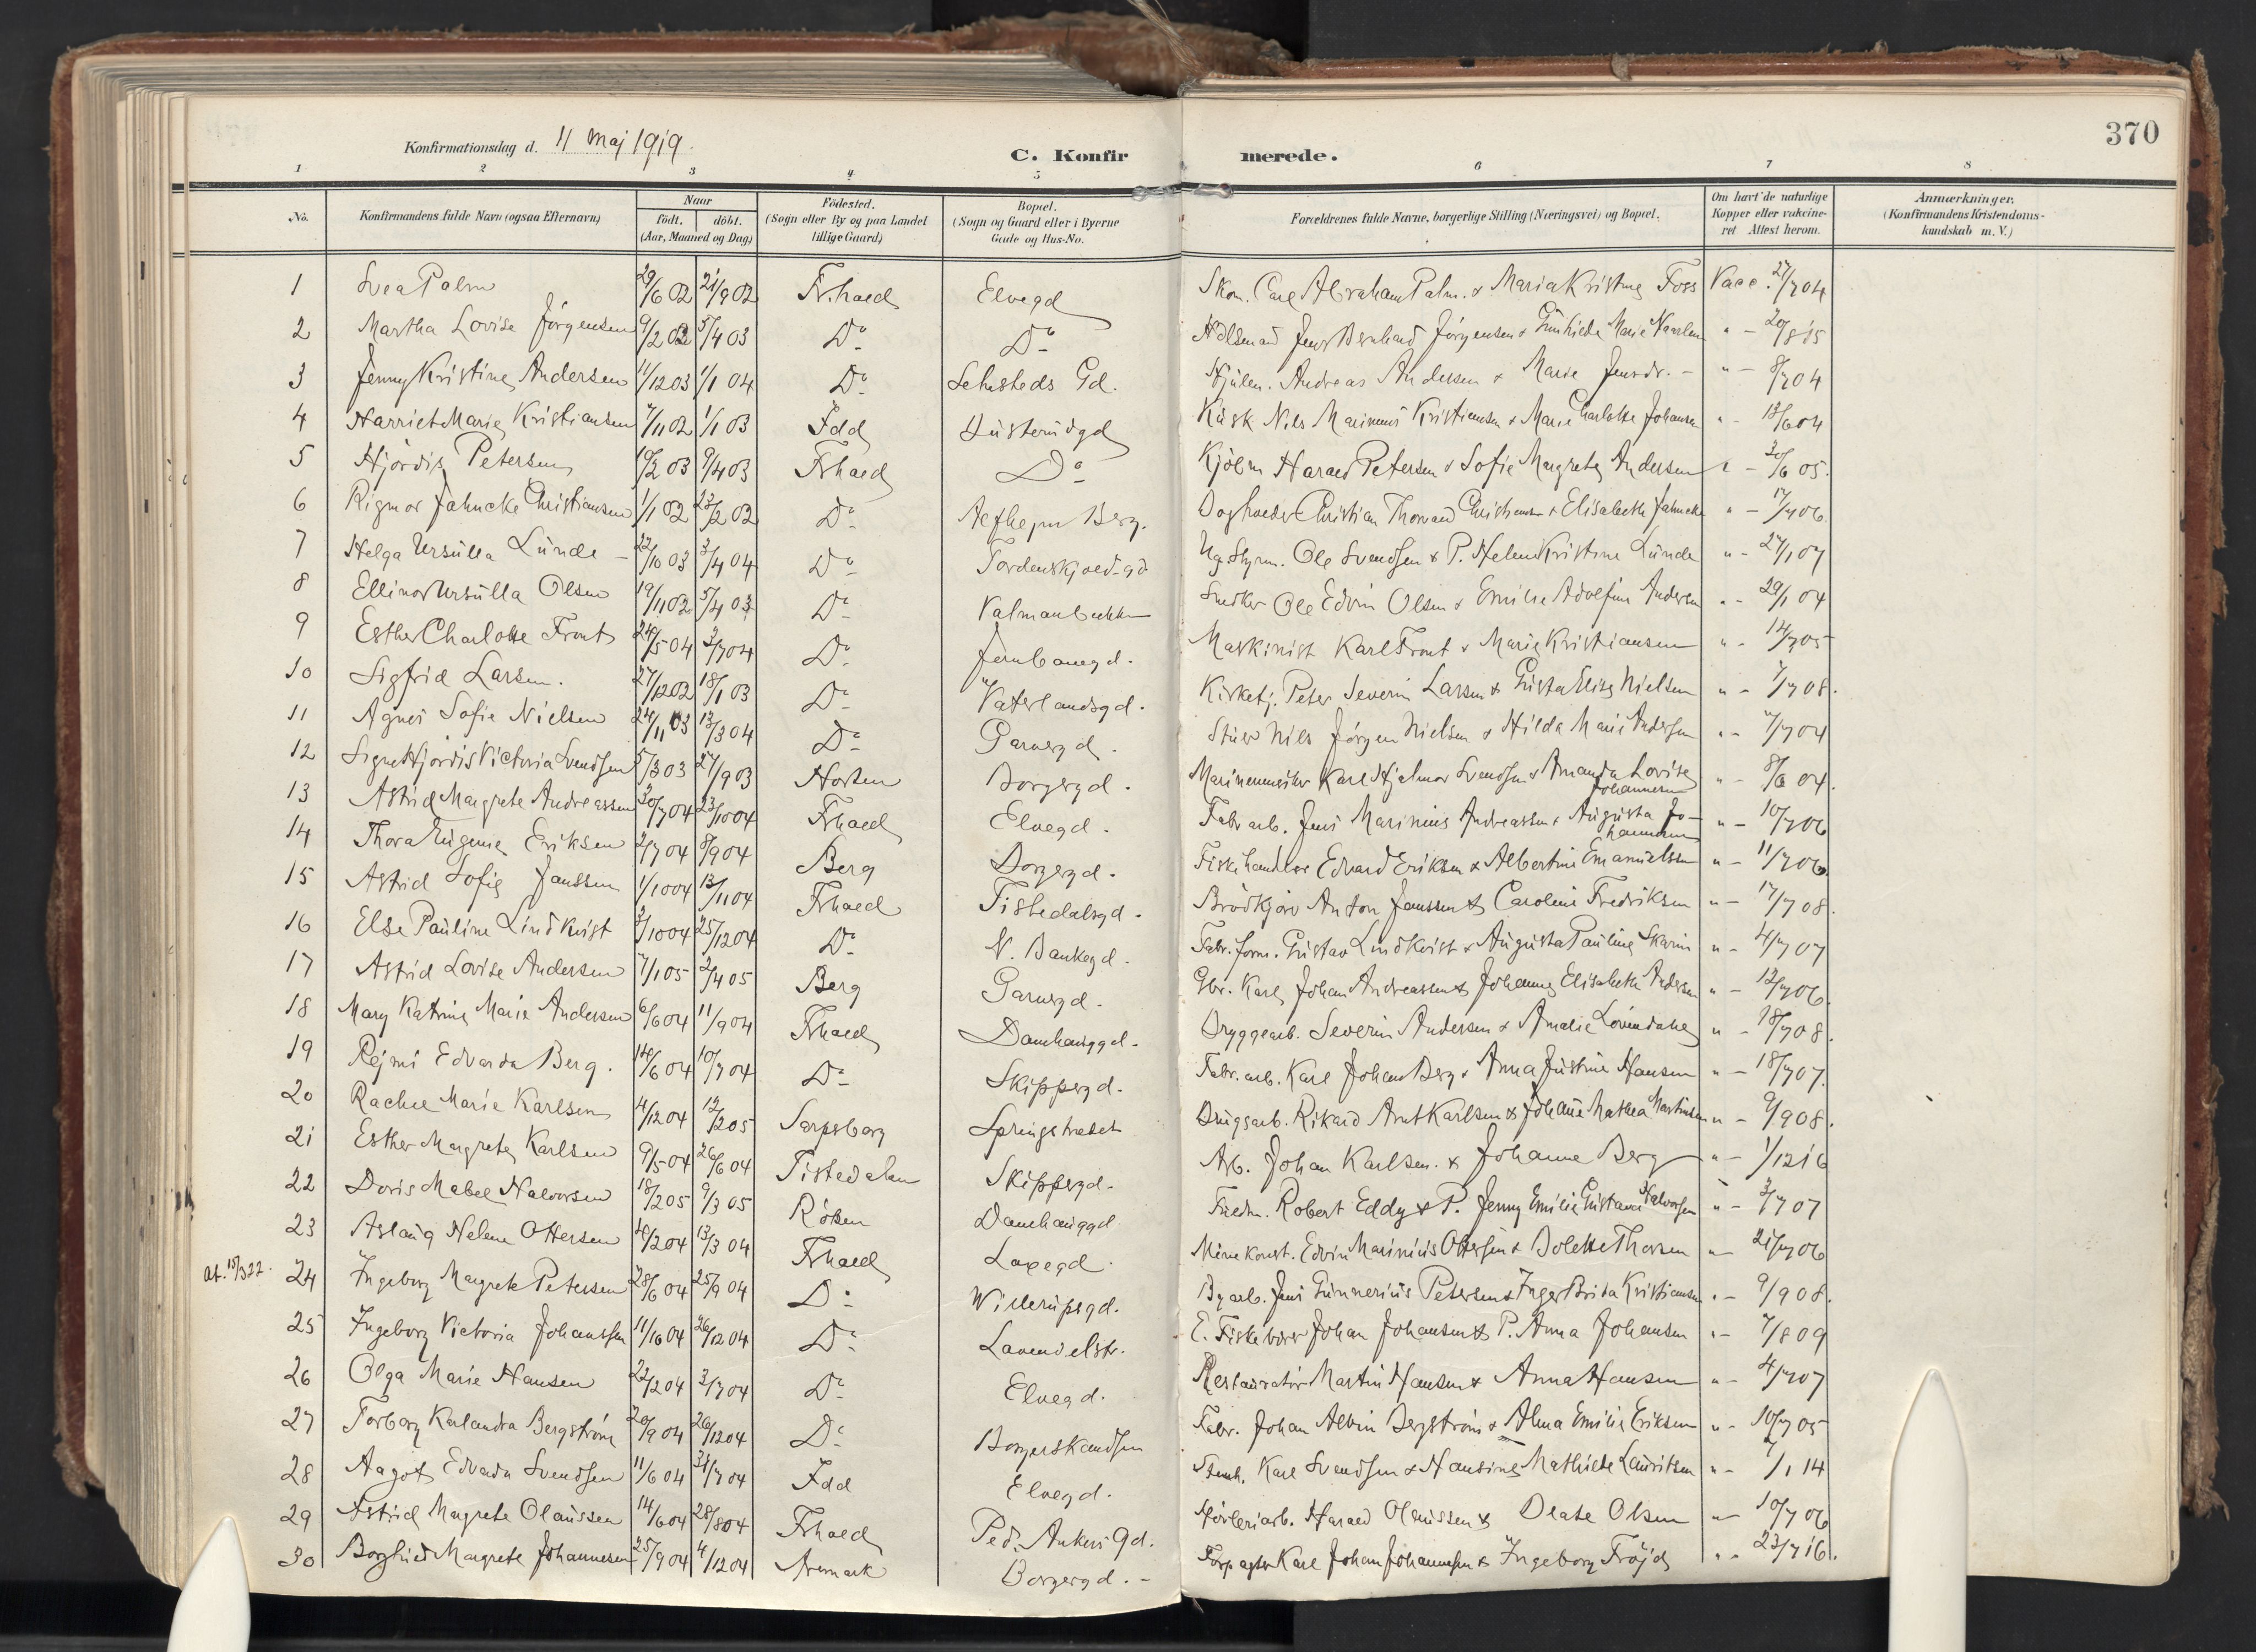 370
Konfirmationsdag d. 11 Maj 1919.
C. Konfirmerede.
1 2 3 4 5 6 7 8
No. Konfirmandens fulde Navn (ogsaa Efternavn) Naar födt. döbt. (Aar, Maaned og Dag) Födested. (Sogn eller By og paa Landet tillige Gaard) Bopæl. (Sogn og Gaard eller i Byerne Gade og Hus-No. Forældrenes fulde Navne, borgerlige Stilling (Næringsvei) og Bopæl. Om havt de naturlige Kopper eller vakcineret Attest herom. Anmærkninger. (Konfirmandens Kristendomskundskab m. V.)
1 Svea Palm 29/6 02 21/9 02 Fr.hald Elvegd Carl Abraham Palm & Maria Kristine Foss Vacc. 27/7 04
2 Martha Lovise Jörgensen 9/2 02 5/4 03 Do Do Jens Bernhard Jörgensen & Marie " - 20/8 15
3 Jenny Kristine Andersen 11/12 03 1/1 04 Do Gd. Andreas Andersen & Marie Jensdr. - " - 8/7 04
4 Harriet Marie Kristiansen 7/11 02 1/1 03 Idd Nils Marinius Kristiansen & Marie Charlotte Johansen " - 13/6 04
5 Hjördis Petersen 10/2 03 9/4 03 Frhald Do Harald Petersen & Sofie Margrete Andersen " - 30/6 05.
6 Rigmor Jahncke Christiansen 1/1 02 23/2 02 Do Berg. Christian Thorvald Christiansen & Elisabeth Jahncke " - 17/7 06.
7 Helga Ursulla Lunde - 22/10 03 3/4 04 Do Tordenskjoldgd Ole Svendsen & P. Helene Kristine Lunde " - 27/1 07
8 Ellinor Ursulla Olsen 19/11 02 5/4 03 Do Snedker Ole Edvin Olsen & Emilie Adolfine Andersen " - 29/1 04
9 Esther Charlotte Front 24/5 04 3/7 04 Do Jernbanegd. Maskinist Karl Front & Marie Kristiansen " - 14/7 05
10 Sigfrid Larsen. 27/12 02 18/1 03 Do Vaterlandsgd. Kirketj. Peter Severin Larsen & Gusta Elise Nielsen " - 7/7 08.
11 Agnes Sofie Nielsen 24/11 03 13/3 04 Do Garvergd. Nils Jörgen Nielsen & Hilda Marie Andersen " - 7/7 04
12 Signe Hjördis Victoria Svendsen 5/3 03 27/9 03 Horten Borgergd. Karl Hjalmar Svendsen & Amanda Lovise Johannesen " - 8/6 04.
13 Astrid Margrete Andreassen 30/7 04 23/10 04 Frhald Elvegd. Fabr arb. Jens Marinius Andreassen & Augusta Johannesen " - 10/7 06
14 Thora Eugenie Eriksen 2/7 04 8/9 04 Berg Borgergd. Fiskehandler Edvard Eriksen & Albertine Emanuelsen " - 11/7 06
15 Astrid Sofie Janssen 1/10 04 13/11 04 Frhald Tistedalsgd. Brödkjörer Anton Janssen & Caroline Fredriksen " - 17/7 08.
16 Else Pauline Lindkvist 3/10 04 25/12 04 Do N. Bankegd. Fabr. form. Gustav Lindkvist & Augusta Pauline " - 4/7 07
17 Astrid Lovise Andersen 7/1 05 2/4 05 Berg Garvergd. Karl Johan Andreassen & Johanne Elisabeth Andersen " - 12/7 06.
18 Mary Katrine Marie Andersen 6/6 04 11/9 04 Frhald Damhauggd. Bryggearb. Severin Andersen & Amalie Lövendahl " - 18/7 08.
19 Rejmi Edvarda Berg. 14/6 04 10/7 04 Do Skippergd. Fabr. arb. Karl Johan Berg & Anna Justine Hansen " - 18/7 07.
20 Rachel Marie Karlsen 4/12 04 12/2 05 Sarpsborg Springstrædet Rikard Arnt Karlsen & Johanne Mathea Martinsen " - 9/9 08.
21 Esther Margrete Karlsen 9/5 04 26/6 04 Tistedalen Skippergd. Arb. Johan Karlsen. & Johanne Berg " - 1/12 16
22 Doris Mabel Halvorsen 18/2 05 9/3 05 Damhauggd Robert Eddy & P. Jenny Emilie Gustava Halvorsen " - 3/7 07
23 Aslaug Helene Ottersen 4/2 04 13/3 04 Frhald Laxegd. Edvin Marinius Ottersen & Bolette Thorsen " - 21/7 06
At. 15/3 22. 24 Ingeborg Margrete Petersen 28/6 04 25/9 04 Do Wielrupsgd. By arb. Jens Gunnerius Petersen & Inger Brita Kristiansen " - 9/9 08.
25 Ingeborg Victoria Johanssen 11/10 04 26/12 04 Do Lavendelstr. E. Johan Johansen & P. Anna Johansen " - 7/8 09
26 Olga Marie Hansen 22/2 04 3/7 04 Do Elvegd. Restauratör Martin Hansen & Anna Hansen " - 4/7 07
27 Torborg Karlandra Bergström 20/9 04 26/12 04 Do Borgerskandsen Fabr. Johan Alvin Bergström & Alma Emilie Eriksen " - 10/7 05
28 Aagot Edvarda Svendsen 11/6 04 31/7 04 Idd Elvegd. Karl Svendsen & Hansine Mathilde Lauritsen " - 7/1 14
29 Astrid Margrete Olaussen 14/6 04 28/8 04 Frhald Ped. Ankers Gd. Harald Olaussen & Olsen " - 10/7 06
30 Borghild Margrete Johannesen 25/9 04 4/12 04 Aremark Borgergd. - Forpagter Karl Johan Johannesen & Ingeborg Fröjd " - 23/7 16.